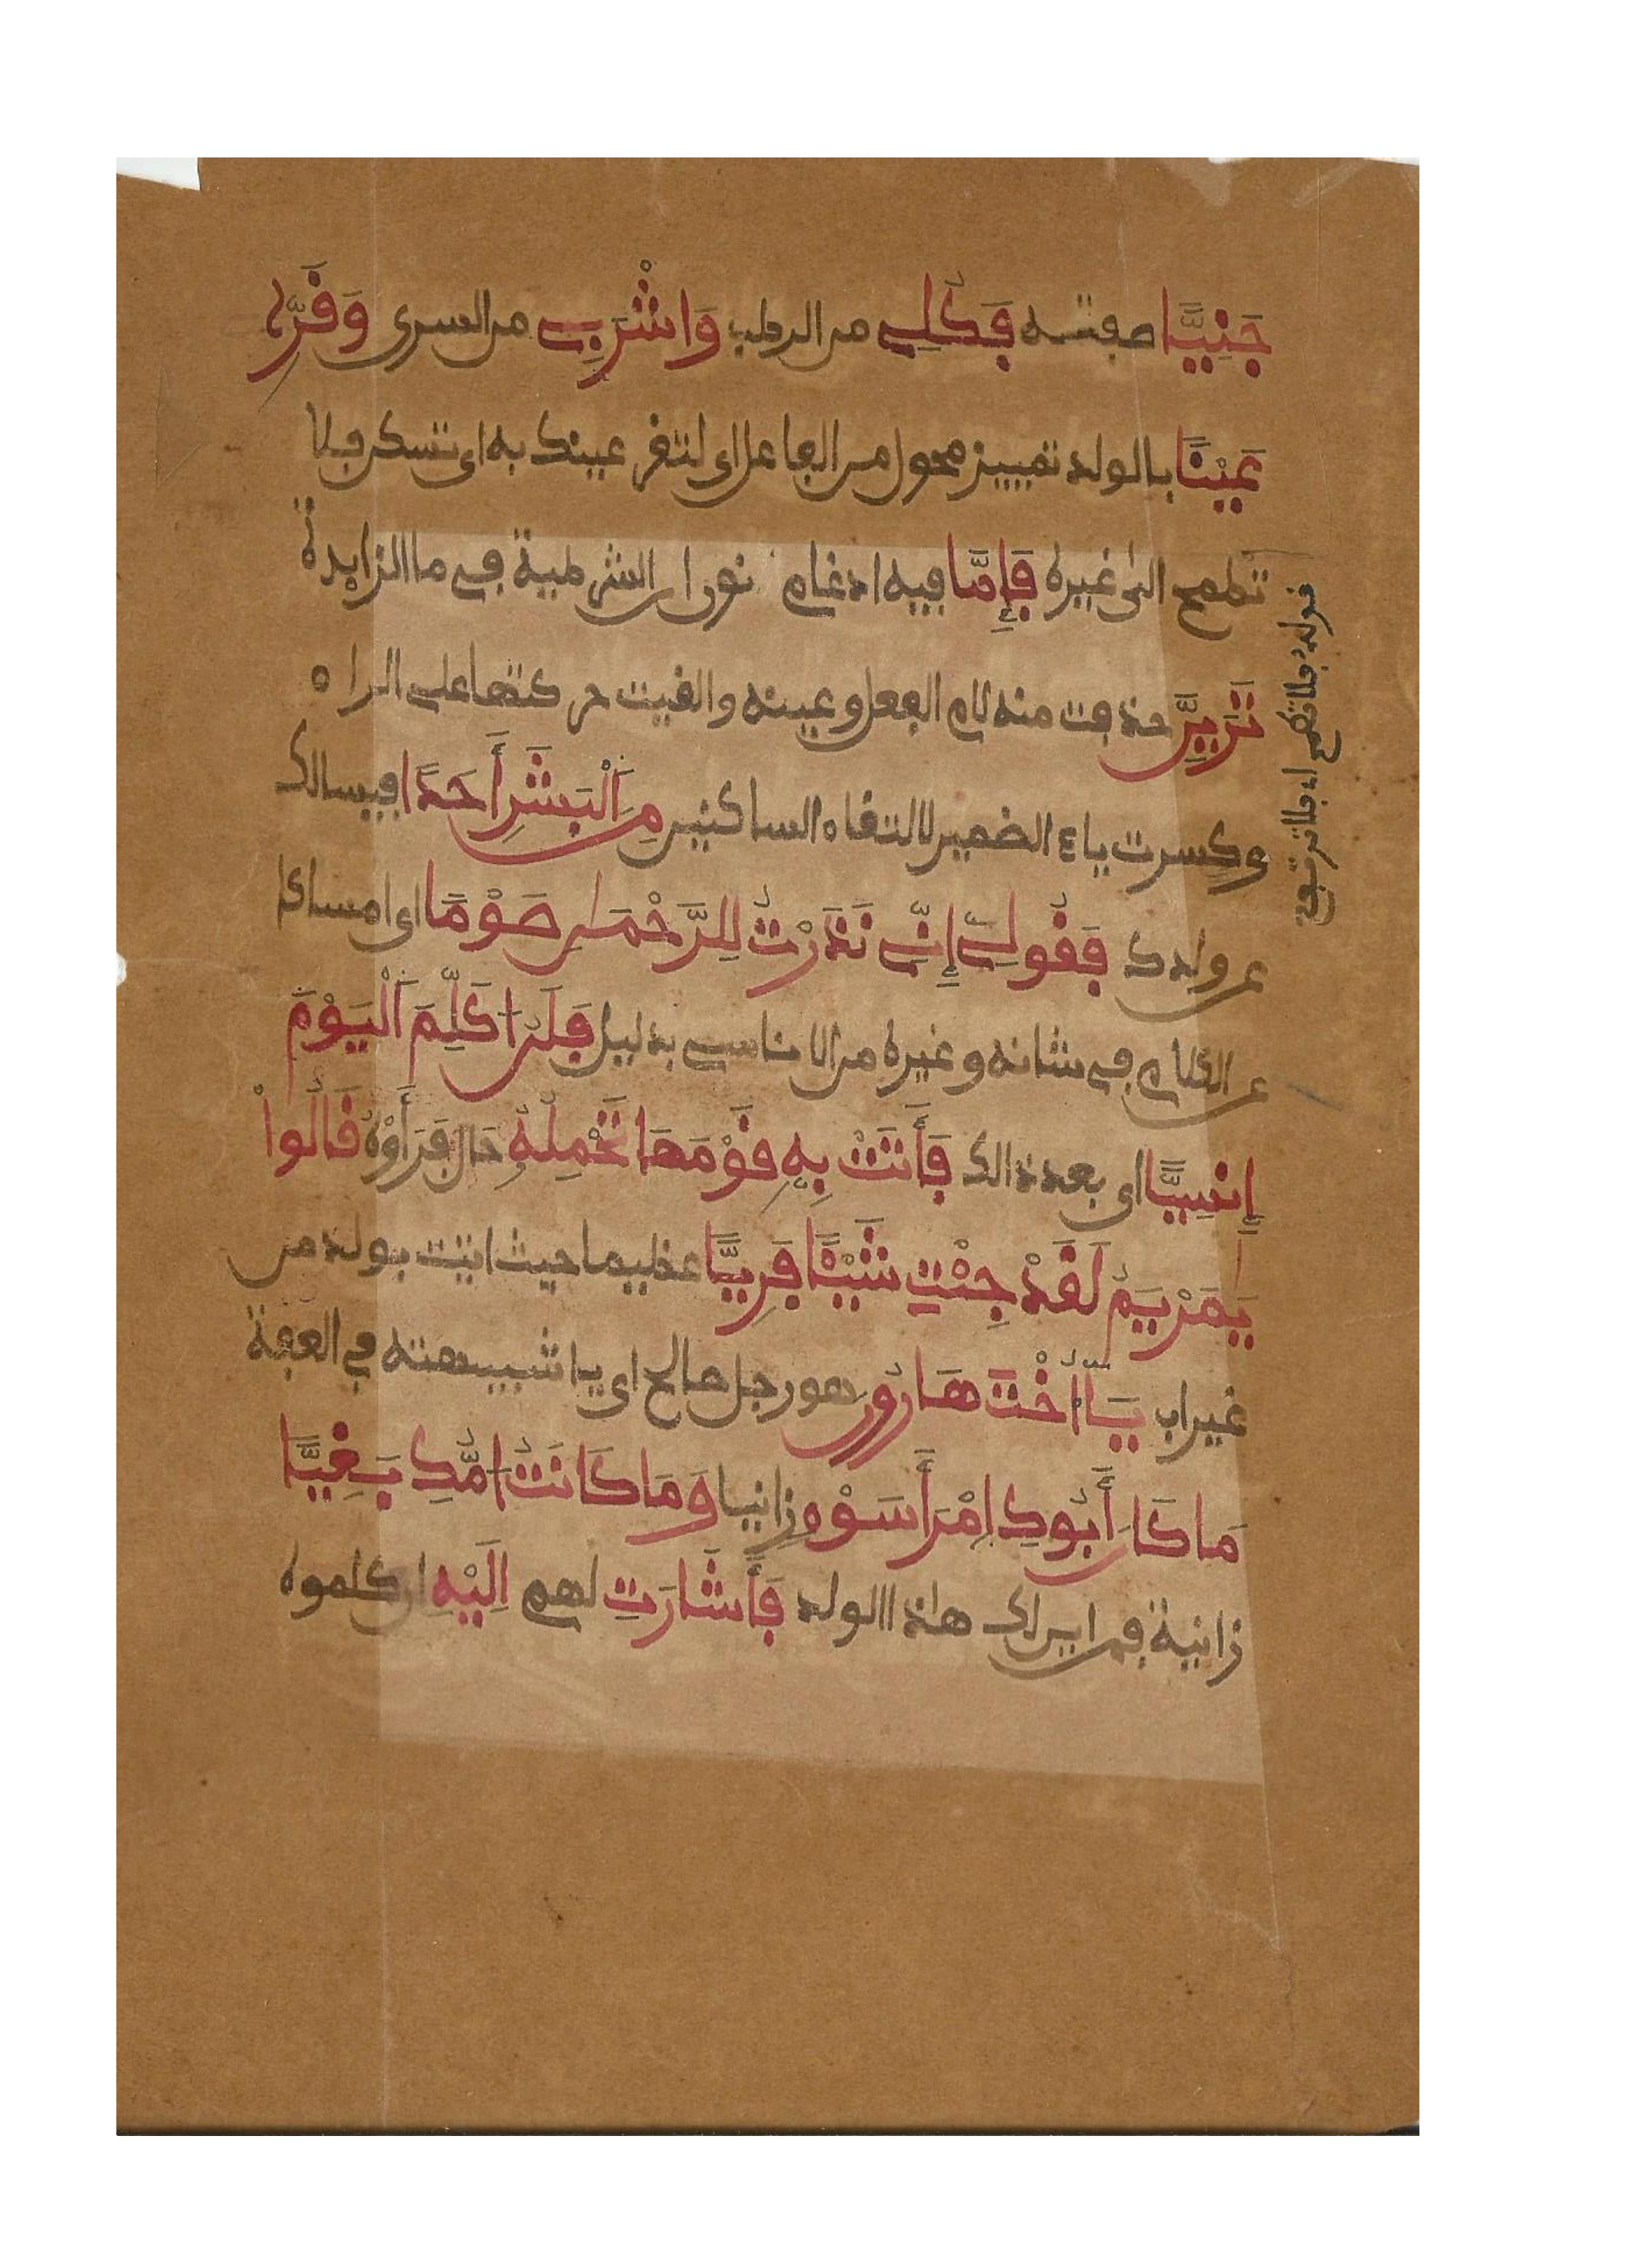 جَنِيًّا صفته فَكُلِے من الرطب وَاشْرَبِے من السرى وَقَرِّے
عَيْنًا بالولد تمييز محول من الفاعل اى لتقر عينك به اى تسكن فلا
تطمح الى غيره فَإِمَّا فيه ادغام نون ان الشرطية فے ما الزايدة
تَرَيِنَّ حذفت منه لام الفعل وعينه والقيت حركتها على الراء
وكسرت ياء الضمير لالتقاء الساكنين مِنَ اَلْبَشَرِ أَحَدًا فيسالك
عن ولدك فَقُولِے إِنِّے نَذَرْتُ لِلرَّحْمَٰنِ صَوْمًا اى امساكا
عن الكلام فے شانه وغيره من الاناسے بدليل فَلَنُ اكَلِّمَ اَلْيَوْمَ
إِنسِيًّا اى بعد ذالك فَأَتَتْ بِهِۦ قَوْمَهَا تَحْمِلُهُۥ حال فَرَأَوْهُ قَالُواْ
يَٰمَرْيَمُ لَقَدْ جِئْتِ شَيْـًٔا فَرِيًّا عظيما حيث اتيت بولد من
غير اب يَـٰٓأُخْتَ هَارُونَ هو رجل صالح اى يا شبيهته في العفة
مَا كَانَ أَبُوكِ اِمْرَأَ سَوْءٍ زانيا وَمَا كَانَتُ امُّكِ بَغِيًّا
زانية فمن اين لك هاذا الولد فَأَشَارَتِ لهم اِلَيْهِ ان كلموه
قوله فلا تطمح اى فلا ترتفع